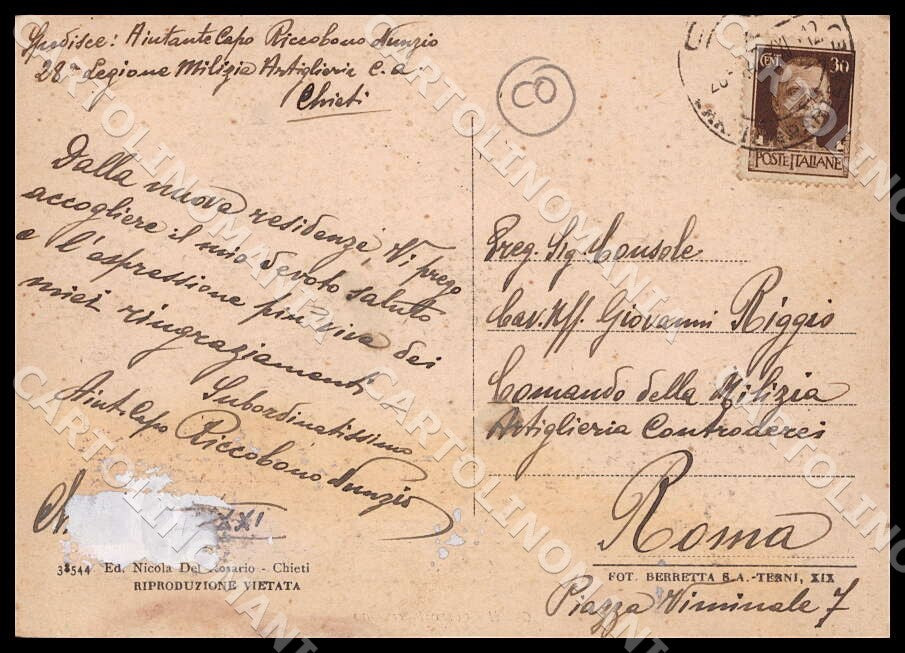 Spedisce: Aiutante Capo Riccobono Nunzio
28ª Legione Milizia Artiglieria C. a.
Chieti
CO
CENT. 30
POSTE ITALIANE
Dalla nuova residenza, Vi prego
accogliere il mio devoto saluto
e l'espressione più viva dei
miei ringraziamenti
Subordinatissimo
Aiut. Capo Riccobono Nunzio
XXI
38544 Ed. Nicola Del Rosario - Chieti
RIPRODUZIONE VIETATA
Preg. Sig. Console
Cav. Uff. Giovanni Riggio
Comando della Milizia
Artiglieria Controaerei
Roma
FOT. BERRETTA S.A.-TERNI, XIX
Piazza Viminale 7
CARTOLINOMANIA